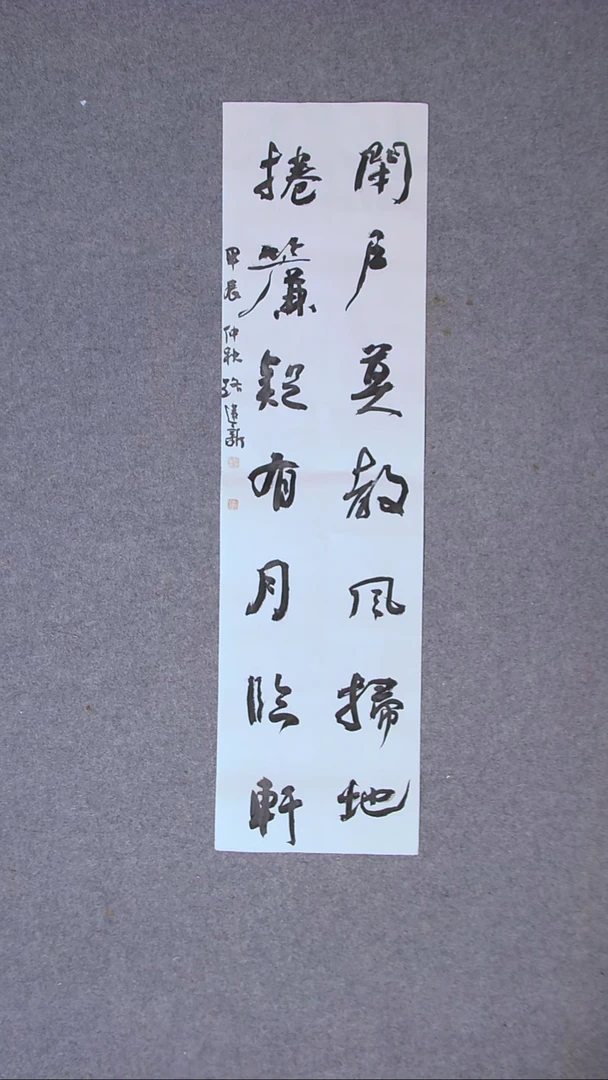 閉户莫教風掃地
捲簾疑有月臨軒
甲辰仲秋